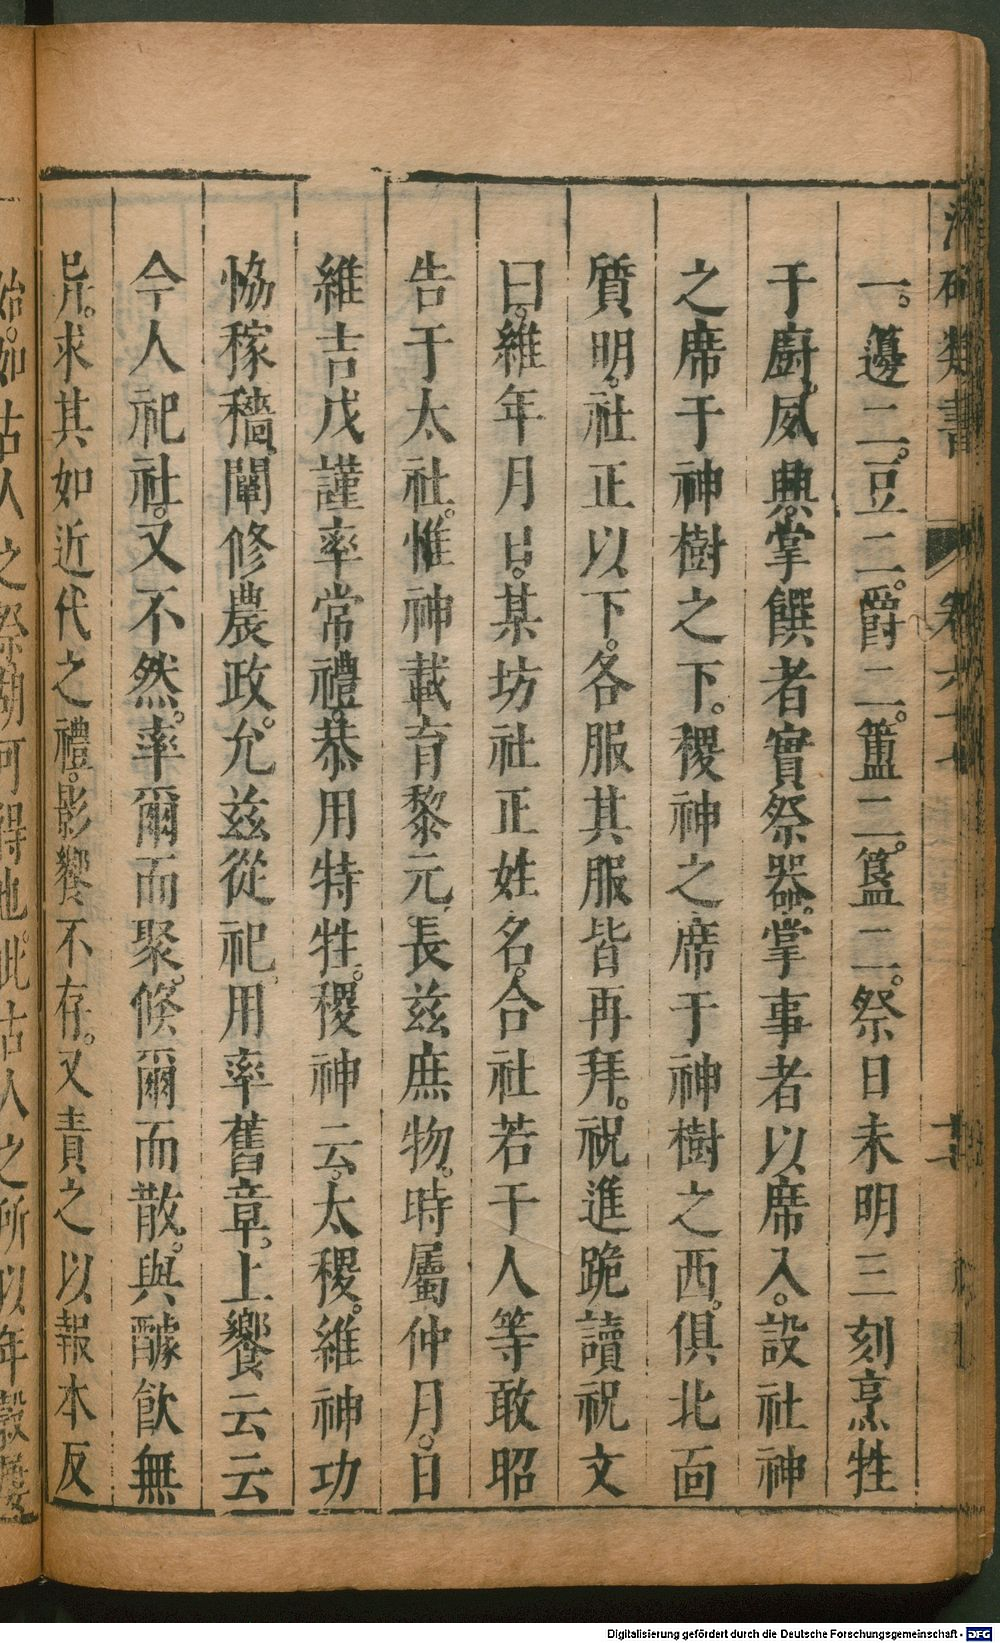 類書
卷六十
一。籩二。豆二。爵二。簠二。簋二。祭日未明三刻烹牲
于厨。威典。掌饌者實祭器。掌事者以席入。設社神
之席于神樹之下。稷神之席于神樹之西。俱北面
質明。社正以下。各服其服皆再拜。祝進跪讀祝文
曰。維年月日。某坊社正姓名。合社若干人等敢昭
告于太社。惟神載育黎元。長茲庶物。時屬仲月。日
維吉戊謹率常禮。恭用特牲。稷神云。太稷。維神功
恊稼穡。闡修農政。允茲從祀。用率舊章。上饗云云
今人祀社。又不然。率爾而聚。倐爾而散。與醵飲無
异。求其如近代之禮。影響不存。又責之以報本反
始。如古人之祭胡可得也。此古人之所以年穀屢
Digitalisierung gefördert durch die Deutsche Forschungsgemeinschaft - DFG